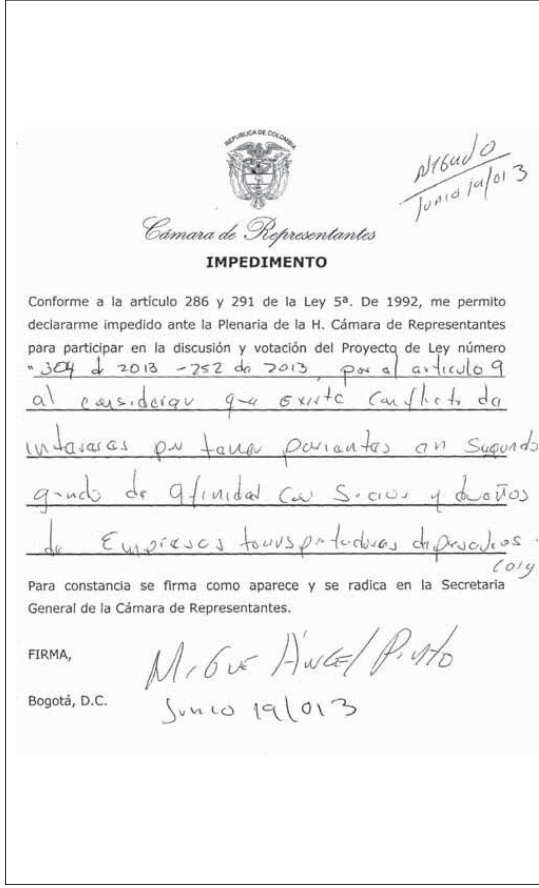 REPUBLICA DE COLOMBIA
Negado
Junio 19/013
Cámara de Representantes
IMPEDIMENTO
Conforme a la artículo 286 y 291 de la Ley 5ª. De 1992, me permito
declararme impedido ante la Plenaria de la H. Cámara de Representantes
para participar en la discusión y votación del Proyecto de Ley número
" 304 d 2013 - 252 de 2013, por el articulo 9
al considerar que existe Conflicto de
intereses por tener parientes en Segundo
grado de afinidad con Socios y dueños
de Empresas transportadoras de
carga
Para constancia se firma como aparece y se radica en la Secretaria
General de la Cámara de Representantes.
FIRMA,
Miguel Ángel Pinto
Bogotá, D.C.
Junio 19/013